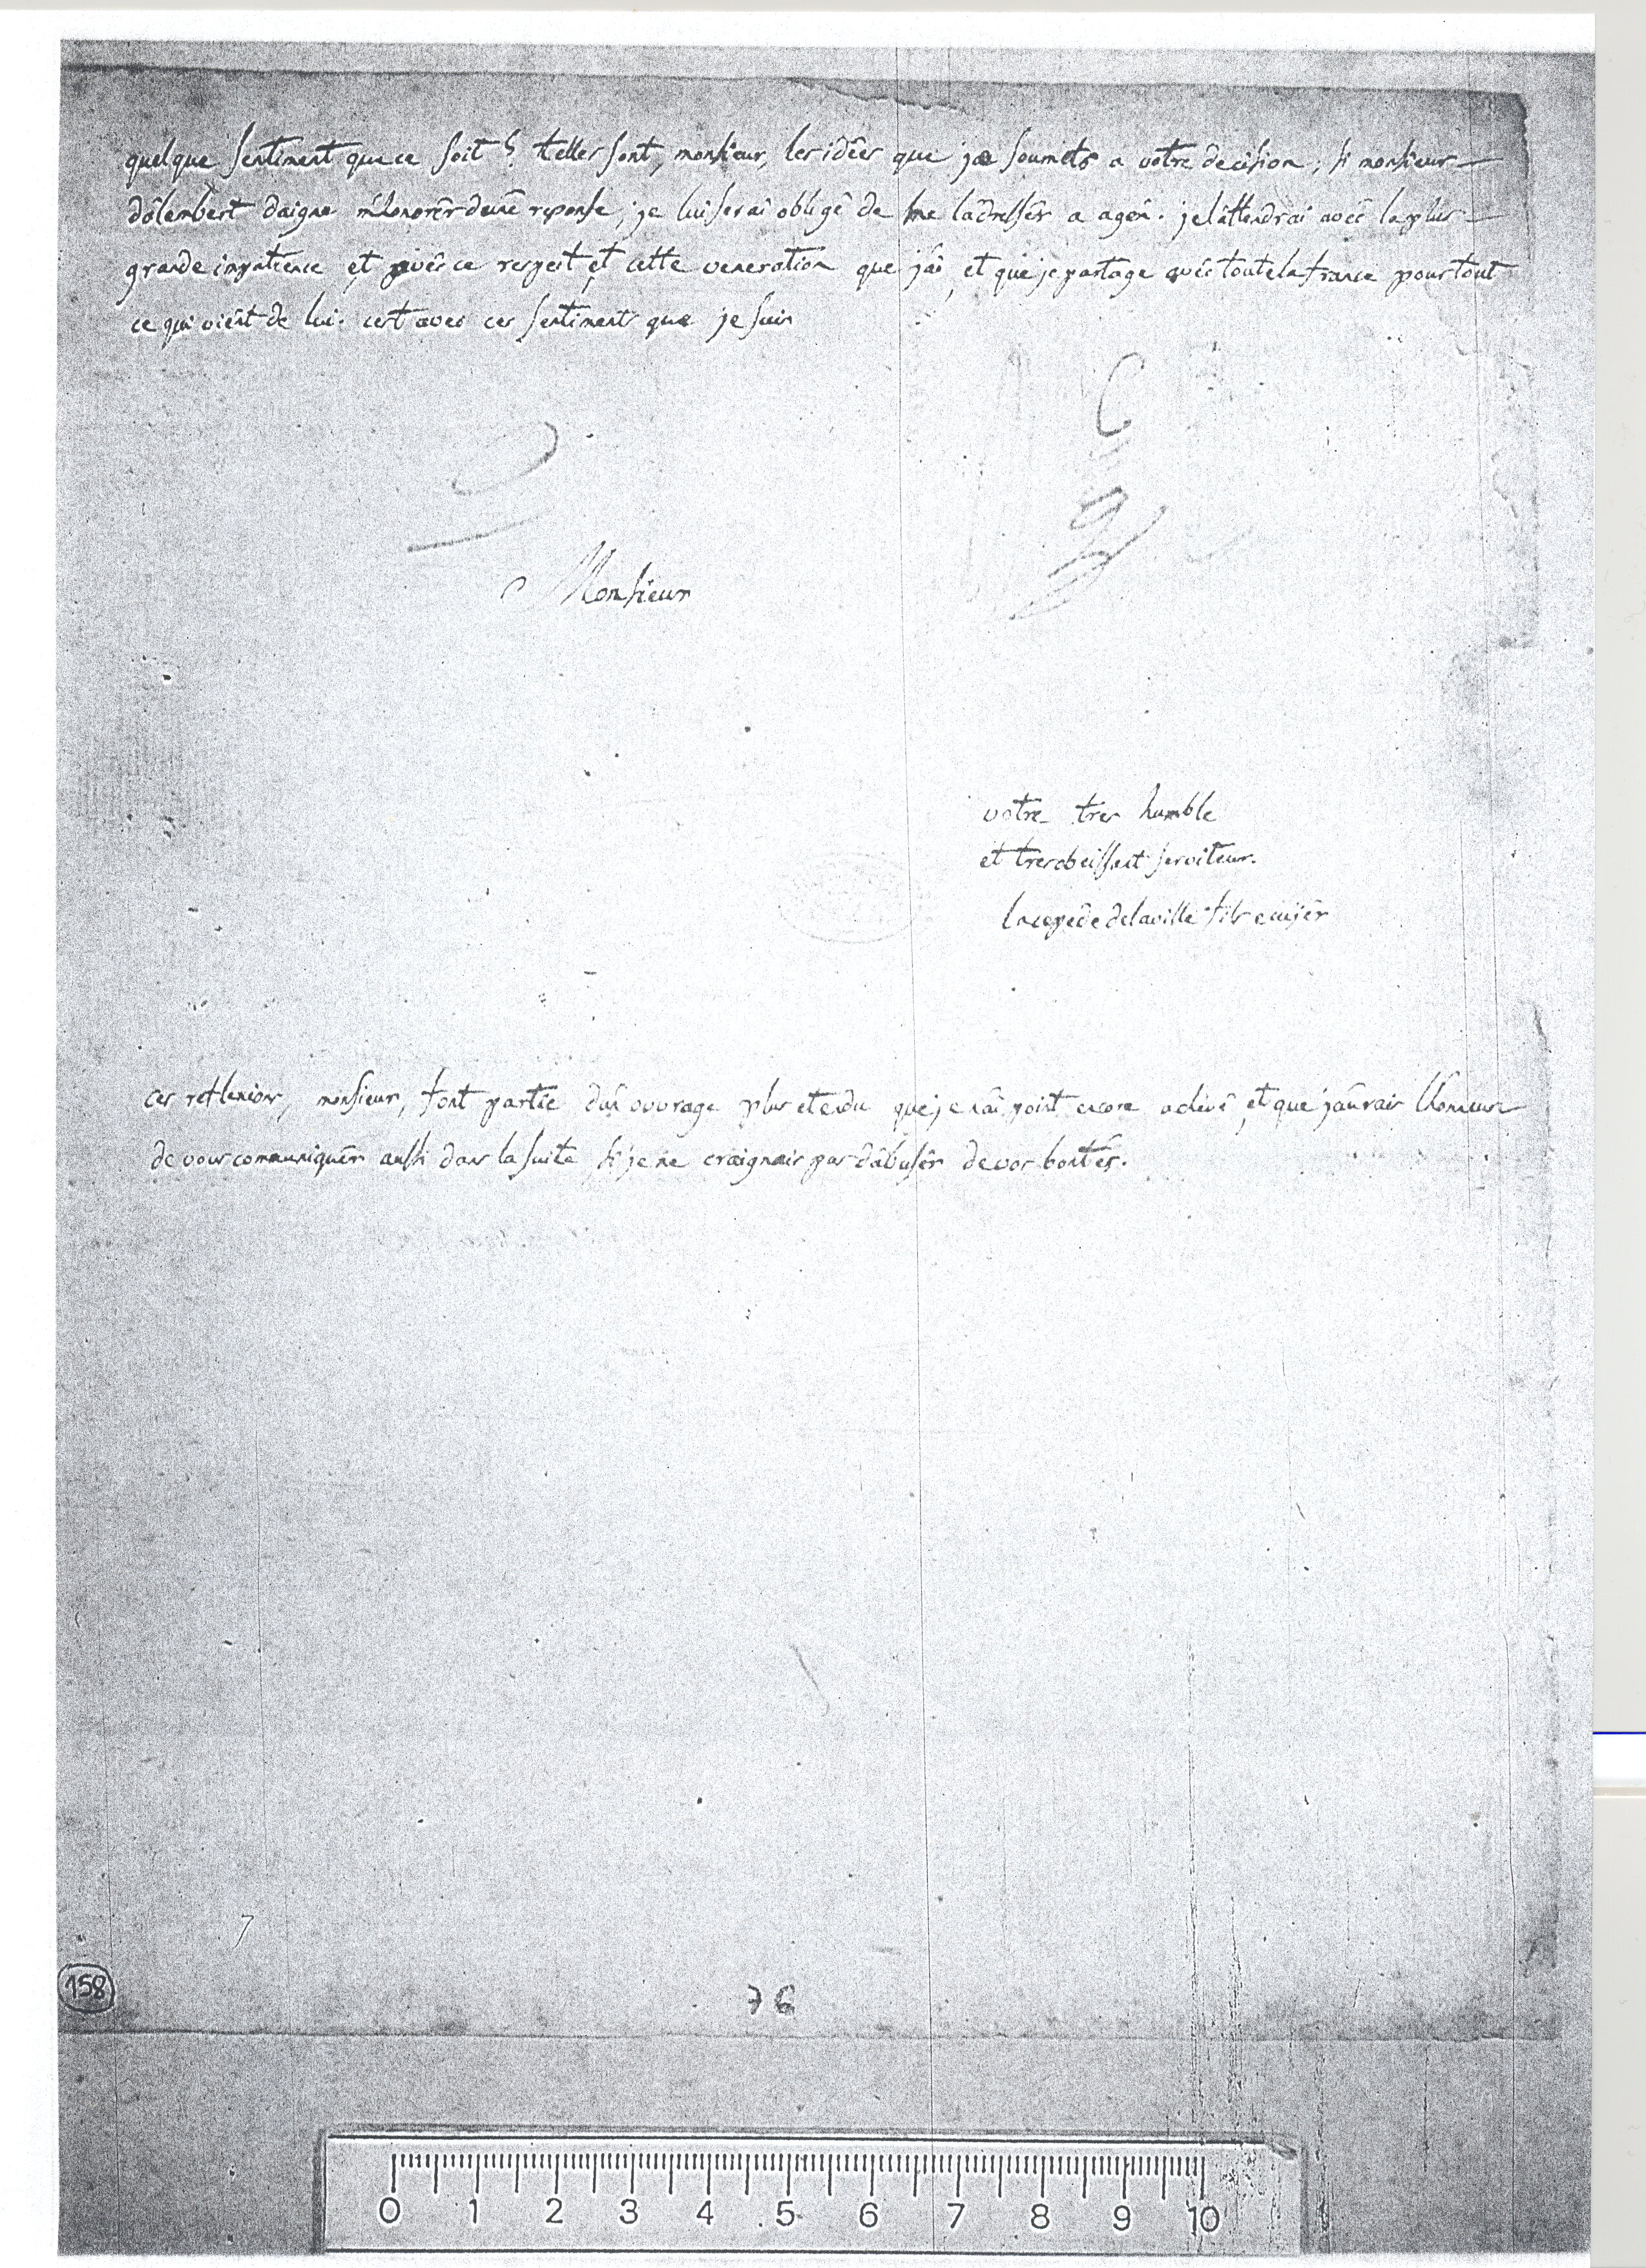 quelque sentiment que ce soit? telles sont, monsieur, les idées que je soumets a votre decision; si monsieur
dâlembert daigne m'honorêr dune reponse, je lui serai obligê de me lâdressêr a agên. je lâttendrai avêc la plus
grande impatience et avêc ce respect et cette veneration que jâi, et que je partage avêc toute la france pour tout
ce qui viênt de lui. cest avec ces sentiments que je suis
Monsieur
votre tres humble
et tres obeissant serviteur.
lacepêde delaville fils ecuiêr
ces reflexions, monsieur, font partie dûn ouvrage plus etendu que je nâi point encore achevê, et que jâurais lhonneur
de vous communiquêr aussi dans la suite si je ne craignais pas dâbusêr de vos bontés.
7
158
76
0 1 2 3 4 5 6 7 8 9 10